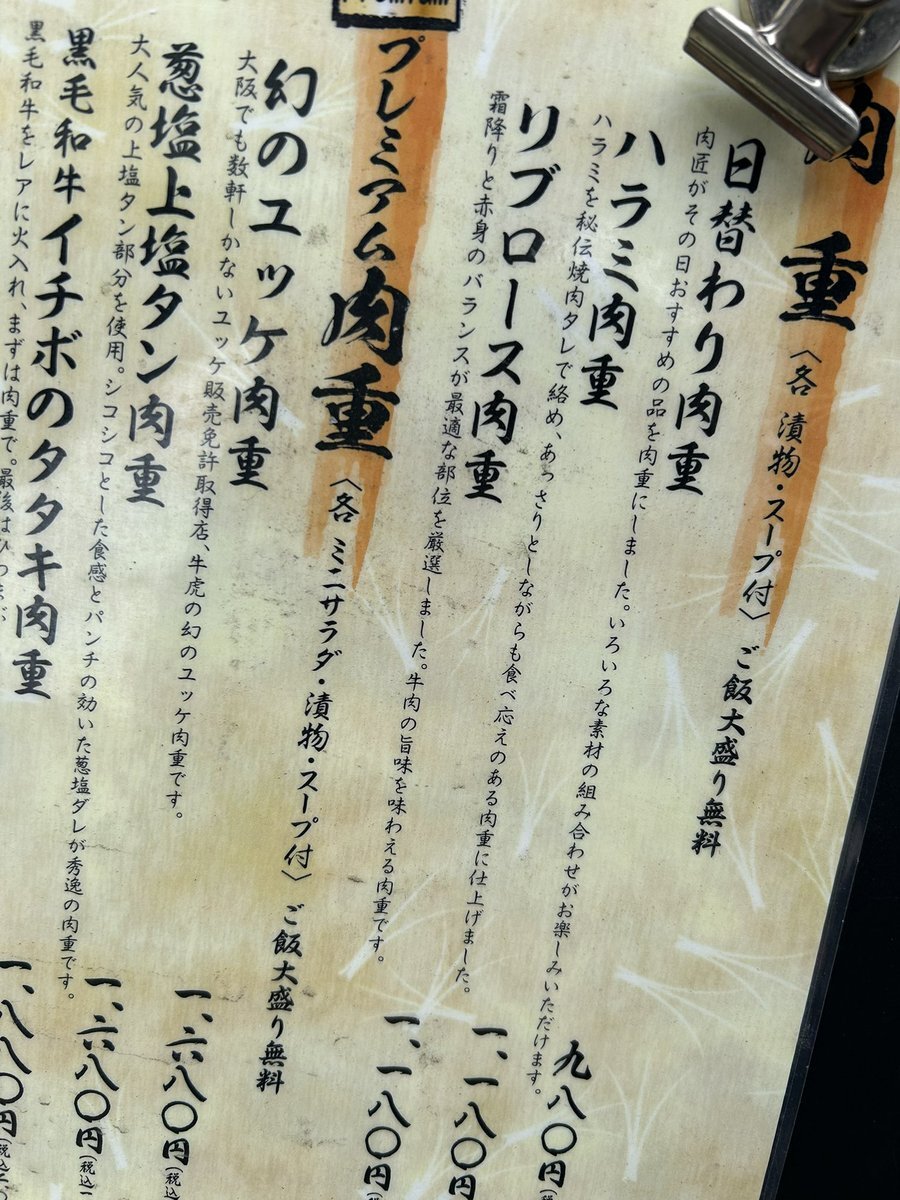 肉重 〈各 漬物・スープ付〉 ご飯大盛り無料
日替わり肉重 九八〇円
肉匠がその日おすすめの品を肉重にしました。いろいろな素材の組み合わせがお楽しみいただけます。
ハラミ肉重 一、一八〇円
ハラミを秘伝焼肉タレで絡め、あっさりとしながらも食べ応えのある肉重に仕上げました。
リブロース肉重 一、一八〇円
霜降りと赤身のバランスが最適な部位を厳選しました。牛肉の旨味を味わえる肉重です。
プレミアム肉重 〈各 ミニサラダ・漬物・スープ付〉 ご飯大盛り無料
幻のユッケ肉重 一、六八〇円(税込
大阪でも数軒しかないユッケ販売免許取得店、牛虎の幻のユッケ肉重です。
葱塩上塩タン肉重 一、六八〇円(税込一
大人気の上塩タン部分を使用。シコシコとした食感とパンチの効いた葱塩ダレが秀逸の肉重です。
黒毛和牛イチボのタタキ肉重 一、八八〇円(税込
黒毛和牛をレアに火入れ、まずは肉重で。最後はひつまぶ